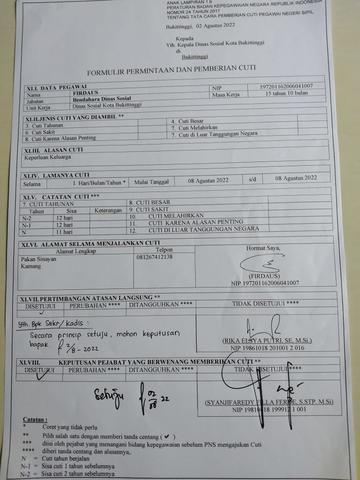 ANAK LAMPIRAN 1.b
PERATURAN BADAN KEPEGAWAIAN NEGARA REPUBLIK INDONESIA
NOMOR 24 TAHUN 2017
TENTANG TATA CARA PEMBERIAN CUTI PEGAWAI NEGERI SIPIL
Bukittinggi, 02 Agustus 2022
Kepada
Yth. Kepala Dinas Sosial Kota Bukittinggi
di
Bukittinggi
FORMULIR PERMINTAAN DAN PEMBERIAN CUTI
XLI. DATA PEGAWAI
Nama FIRDAUS NIP 197201162006041007
Jabatan Bendahara Dinas Sosial Masa Kerja 15 tahun 10 bulan
Unit Kerja Dinas Sosial Kota Bukittinggi
XLII. JENIS CUTI YANG DIAMBIL **
Cuti Tahunan 4. Cuti Besar
6. Cuti Sakit 7. Cuti Melahirkan
8. Cuti Karena Alasan Penting 7. Cuti di Luar Tanggungan Negara
XLIII. ALASAN CUTI
Keperluan Keluarga
XLIV. LAMANYA CUTI
Selama 1 Hari/Bulan/Tahun * Mulai Tanggal 08 Agustus 2022 s/d 08 Agustus 2022
XLV. CATATAN CUTI ***
7. CUTI TAHUNAN 8. CUTI BESAR
Tahun Sisa Keterangan 9. CUTI SAKIT
N-2 12 hari 10. CUTI MELAHIRKAN
N-1 12 hari 11. CUTI KARENA ALASAN PENTING
N 11 hari 12. CUTI DI LUAR TANGGUNGAN NEGARA
XLVI. ALAMAT SELAMA MENJALANKAN CUTI
Alamat Lengkap Telpon Hormat Saya,
Pakan Sinayan 081267412138
Kamang
(FIRDAUS)
NIP 197201162006041007
XLVII. PERTIMBANGAN ATASAN LANGSUNG **
DISETUJUI PERUBAHAN **** DITANGGUHKAN **** TIDAK DISETUJUI ****
Yth Bpk Sekr/Kadis :
Secara prinsip setuju, mohon keputusan
bapak 2/8-2022
(RIKA ELSYA PUTRI, SE, M.Si)
NIP 19861018 201001 2 016
XLVIII. KEPUTUSAN PEJABAT YANG BERWENANG MEMBERIKAN CUTI **
DISETUJUI PERUBAHAN **** DITANGGUHKAN **** TIDAK DISETUJUI ****
Setuju 02/08 22
NIP
Catatan :
* Coret yang tidak perlu
** Pilih salah satu dengan memberi tanda centang ( ✓ )
*** diisi oleh pejabat yang menangani bidang kepegawaian sebelum PNS mengajukan Cuti
**** diberi tanda centang dan alasannya,
N = Cuti tahun berjalan
N-1 = Sisa cuti 1 tahun sebelumnya
N-2 = Sisa cuti 2 tahun sebelumnya